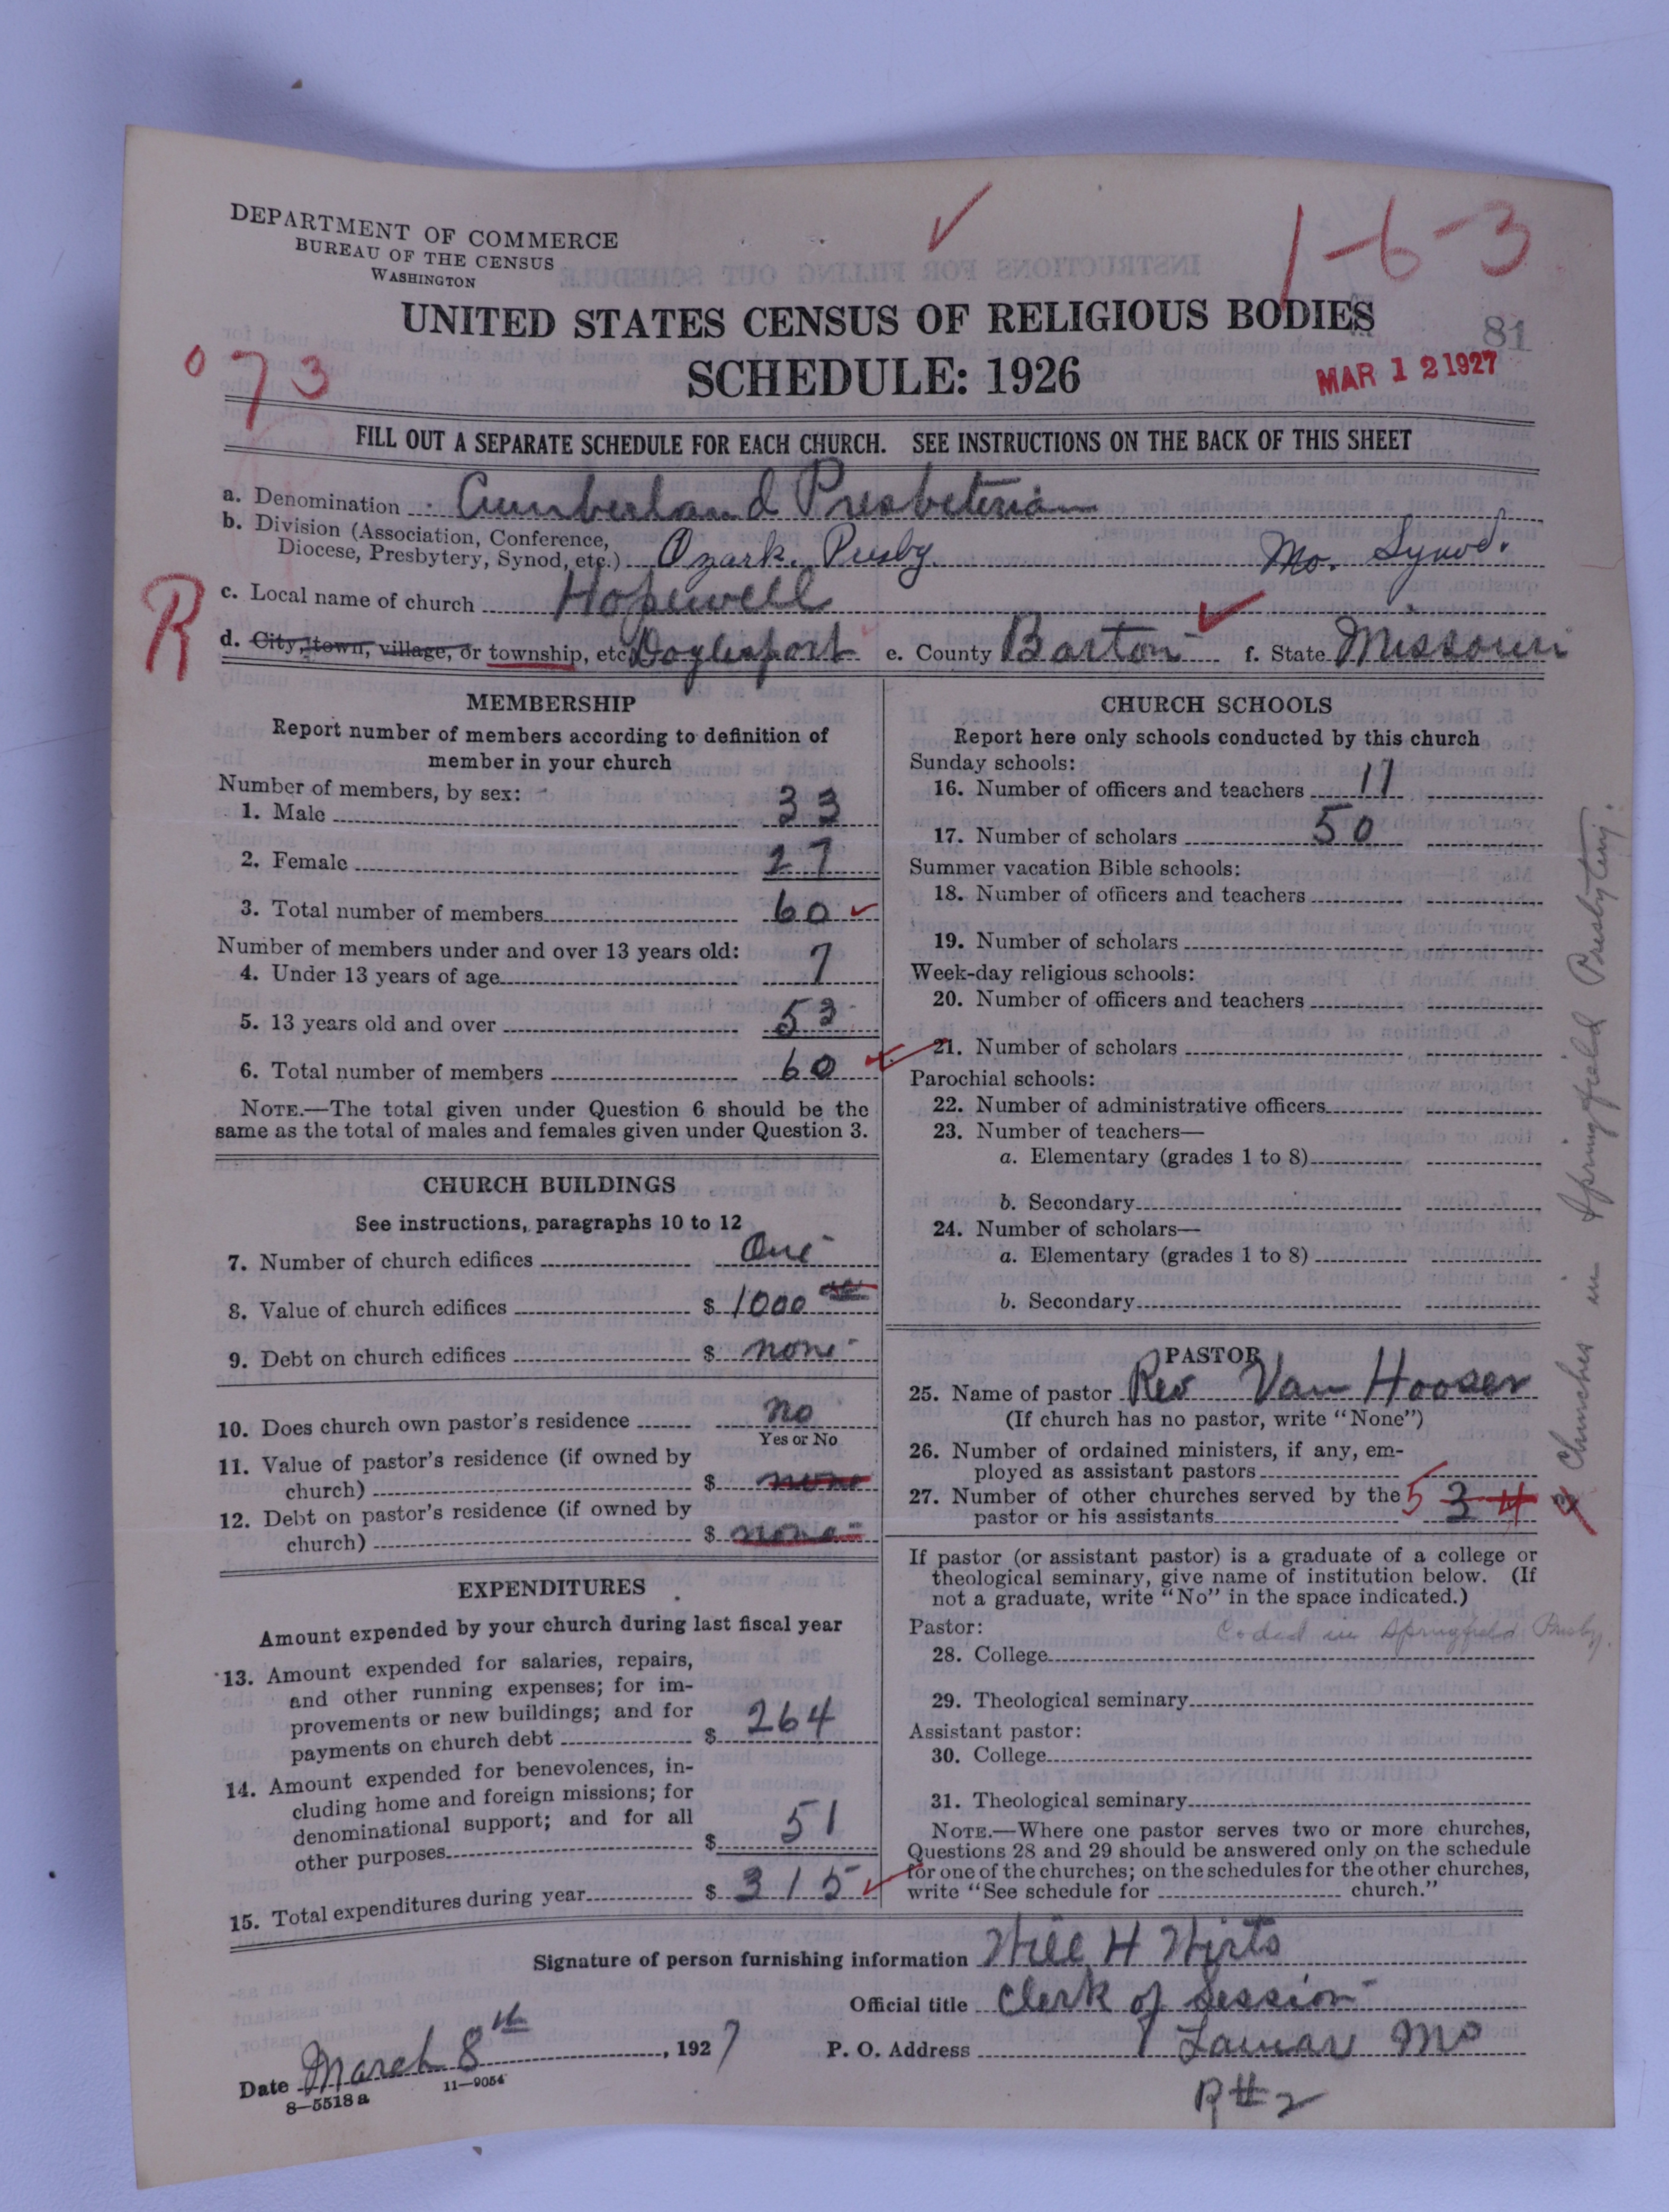 DEPARTMENT OF COMMERCE
BUREAU OF THE CENSUS
WASHINGTON
1-6-3
UNITED STATES CENSUS OF RELIGIOUS BODIES
81
073
SCHEDULE: 1926
MAR 12 1927
FILL OUT A SEPARATE SCHEDULE FOR EACH CHURCH. SEE INSTRUCTIONS ON THE BACK OF THIS SHEET
a. Denomination Cumberland Presbeterian
b. Division (Association, Conference, Diocese, Presbytery, Synod, etc.) Ozark. Presby. Mo. Synod.
c. Local name of church Hopewell
R
d. City, town, village, or township, etc. Doylesport e. County Barton f. State Missouri
MEMBERSHIP
Report number of members according to definition of
member in your church
Number of members, by sex:
1. Male 33
2. Female 27
3. Total number of members 60
Number of members under and over 13 years old:
4. Under 13 years of age 7
5. 13 years old and over 53
6. Total number of members 60
NOTE.—The total given under Question 6 should be the
same as the total of males and females given under Question 3.
CHURCH BUILDINGS
See instructions, paragraphs 10 to 12
7. Number of church edifices One
8. Value of church edifices $ 1000
9. Debt on church edifices $ none
10. Does church own pastor's residence no
Yes or No
11. Value of pastor's residence (if owned by
church) $ none
12. Debt on pastor's residence (if owned by
church) $ none
EXPENDITURES
Amount expended by your church during last fiscal year
13. Amount expended for salaries, repairs,
and other running expenses; for im-
provements or new buildings; and for
payments on church debt $ 264
14. Amount expended for benevolences, in-
cluding home and foreign missions; for
denominational support; and for all
other purposes $ 51
15. Total expenditures during year $ 315
CHURCH SCHOOLS
Report here only schools conducted by this church
Sunday schools:
16. Number of officers and teachers 11
17. Number of scholars 50
Summer vacation Bible schools:
18. Number of officers and teachers
19. Number of scholars
Week-day religious schools:
20. Number of officers and teachers
21. Number of scholars
Parochial schools:
22. Number of administrative officers
23. Number of teachers—
a. Elementary (grades 1 to 8)
b. Secondary
24. Number of scholars—
a. Elementary (grades 1 to 8)
b. Secondary
PASTOR
25. Name of pastor Rev Van Hooser
(If church has no pastor, write "None")
26. Number of ordained ministers, if any, em-
ployed as assistant pastors
27. Number of other churches served by the
pastor or his assistants 5 3 4
Churches in Springfield Presbytery.
If pastor (or assistant pastor) is a graduate of a college or
theological seminary, give name of institution below. (If
not a graduate, write "No" in the space indicated.)
Pastor: Coded in Springfield Presby.
28. College
29. Theological seminary
Assistant pastor:
30. College
31. Theological seminary
NOTE.—Where one pastor serves two or more churches,
Questions 28 and 29 should be answered only on the schedule
for one of the churches; on the schedules for the other churches,
write "See schedule for church."
Signature of person furnishing information Will H Wirts
Official title Clerk of Session
Date March 8th, 1927 P. O. Address Lamar Mo
R#2
8—5518 a 11—9054